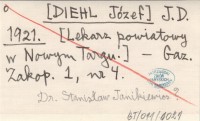 [DIEHL Józef] J.D.
1921. [Lekarz powiatowy
w Nowym Targu.] – Gaz.
Zakop. 1, nr 4.
Dr. Stanisław Janikiewicz ?